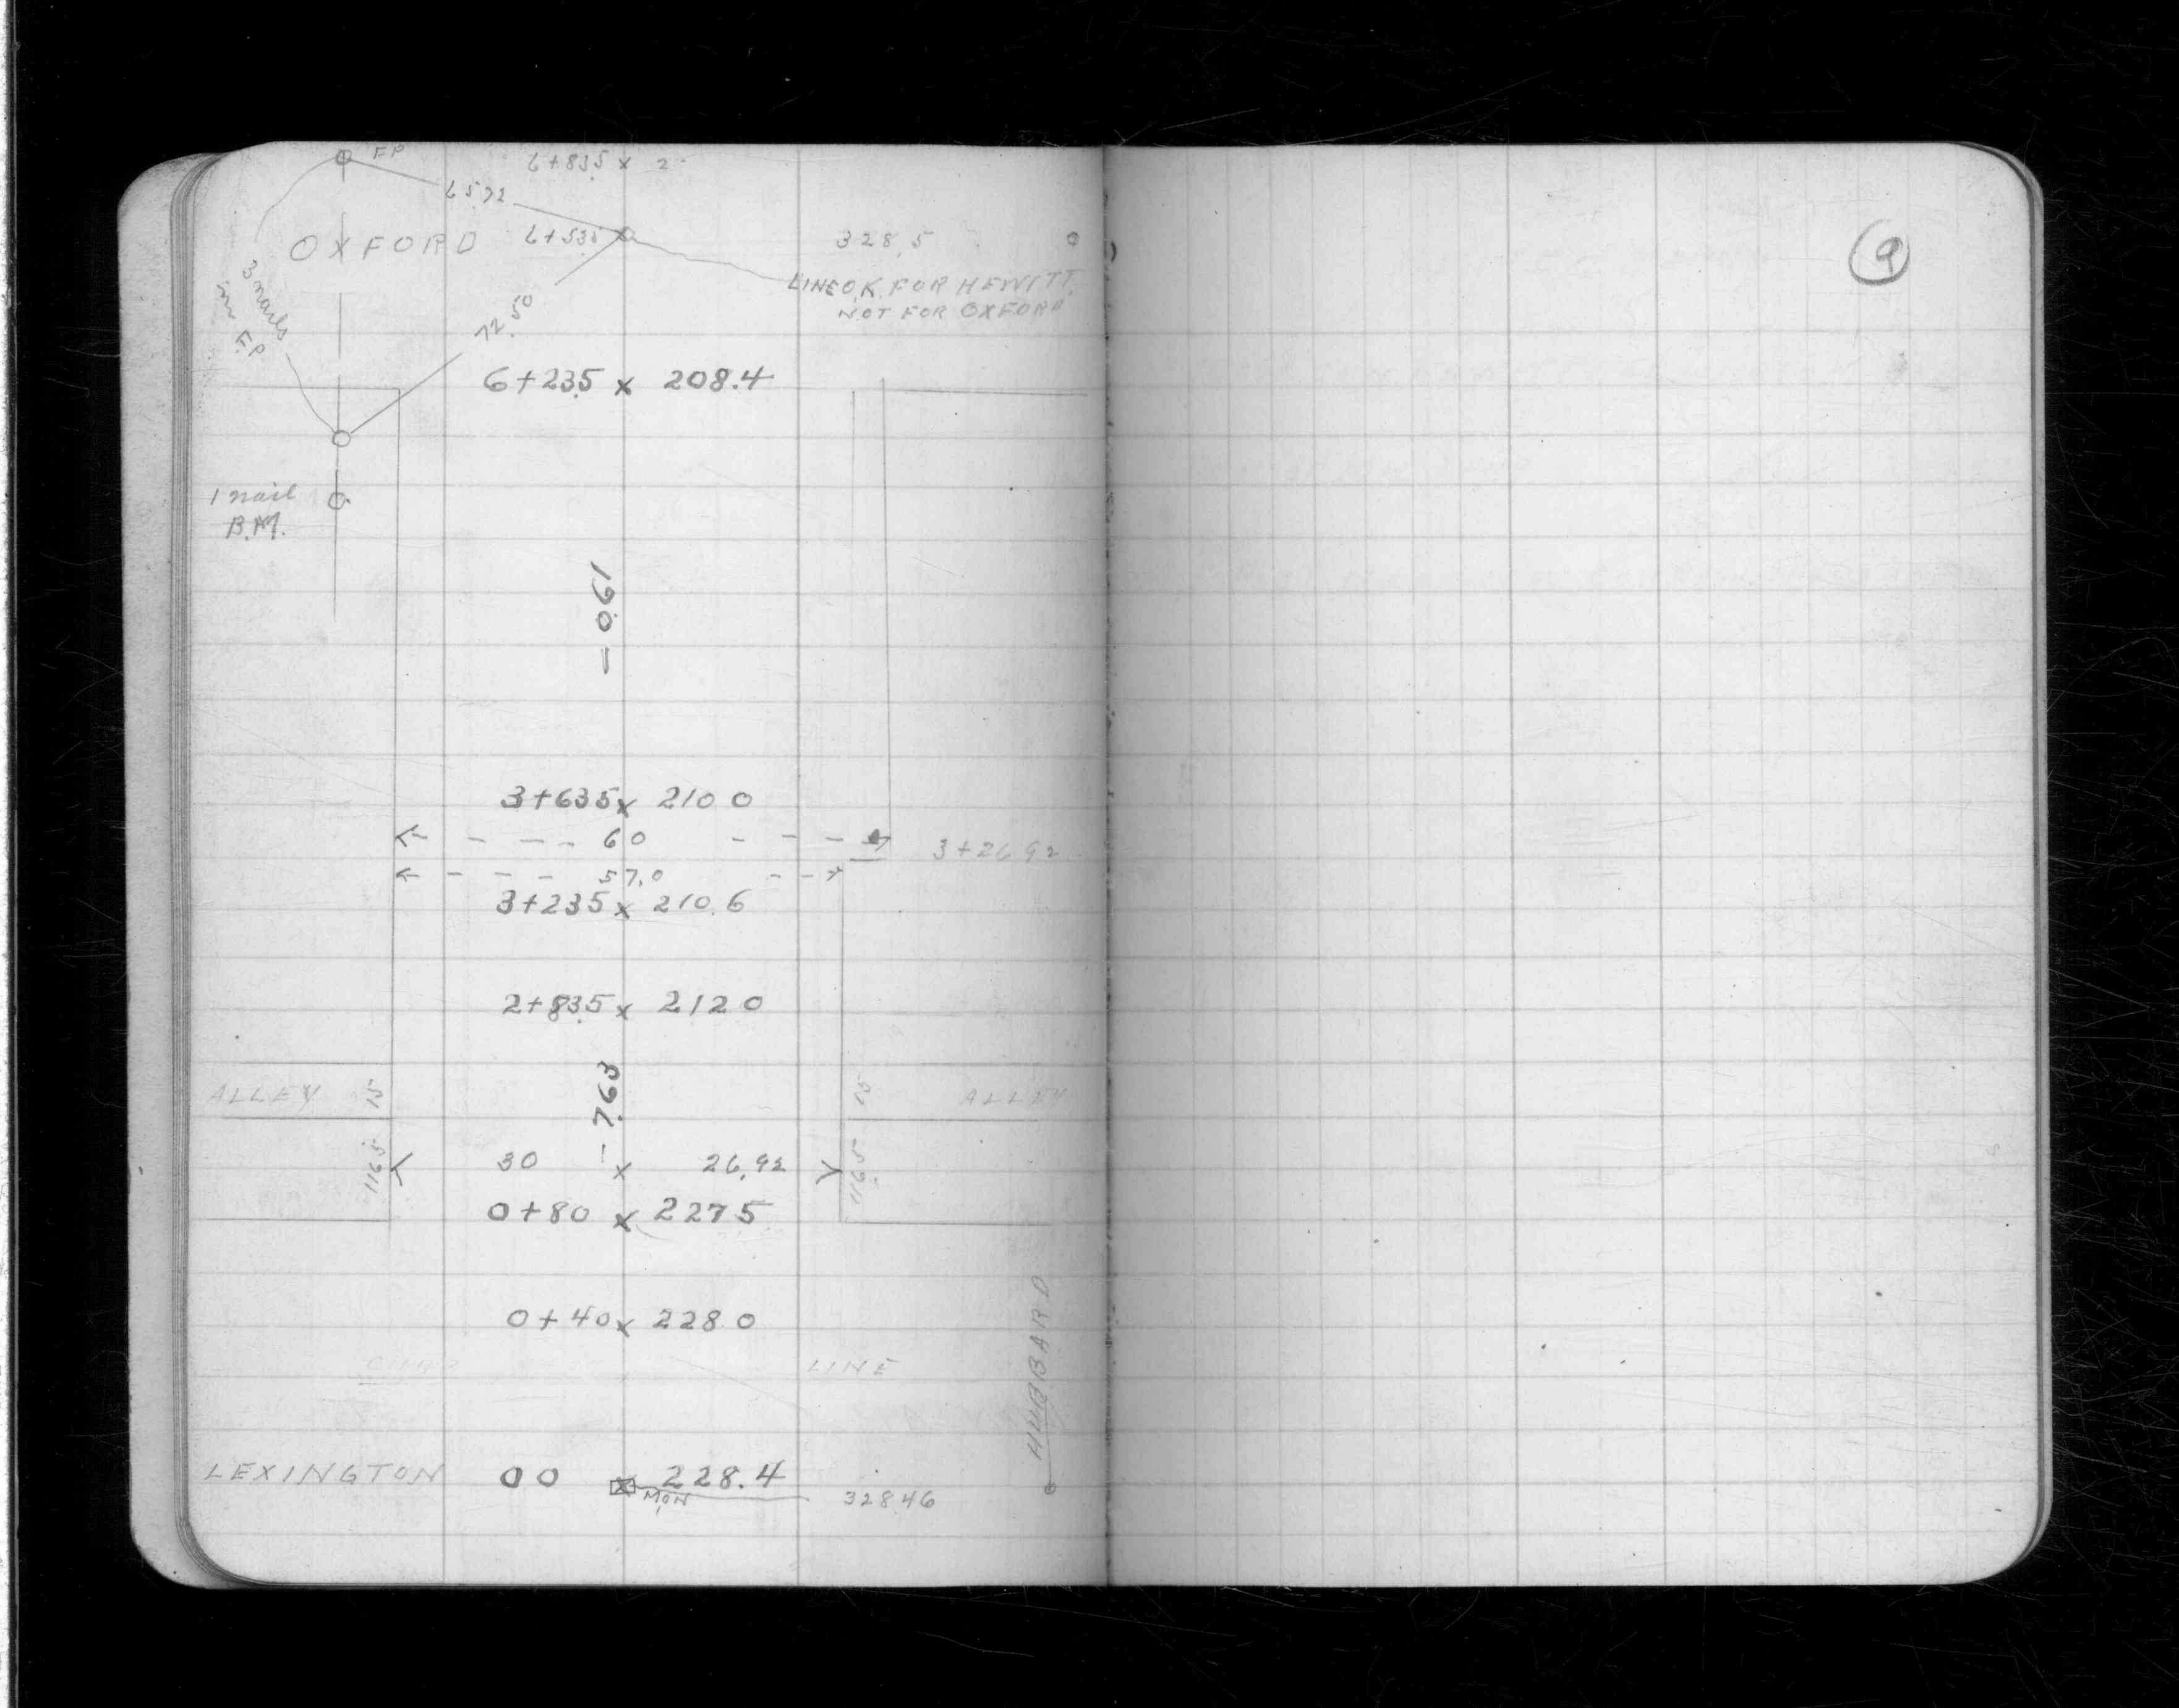 F.P
6+83.5 x 2
65.72
OXFORD 6+53.5
328.5
LINE O.K. FOR HEWITT.
NOT FOR OXFORD
3 nails
in
F.P
72.50
6+23.5 x 208.4
1 nail
B.M.
- 0.61
3+63.5 x 210 0
60
3+26 92
57.0
3+23.5 x 210.6
2+83.5 x 212 0
- 7.63
ALLEY 15
15 ALLEY
116.5
30 x 26.92
116.5
0+80 x 227 5
0+40 x 228 0
LINE
HUBBARD
LEXINGTON 00 228.4
MON
328 46
9